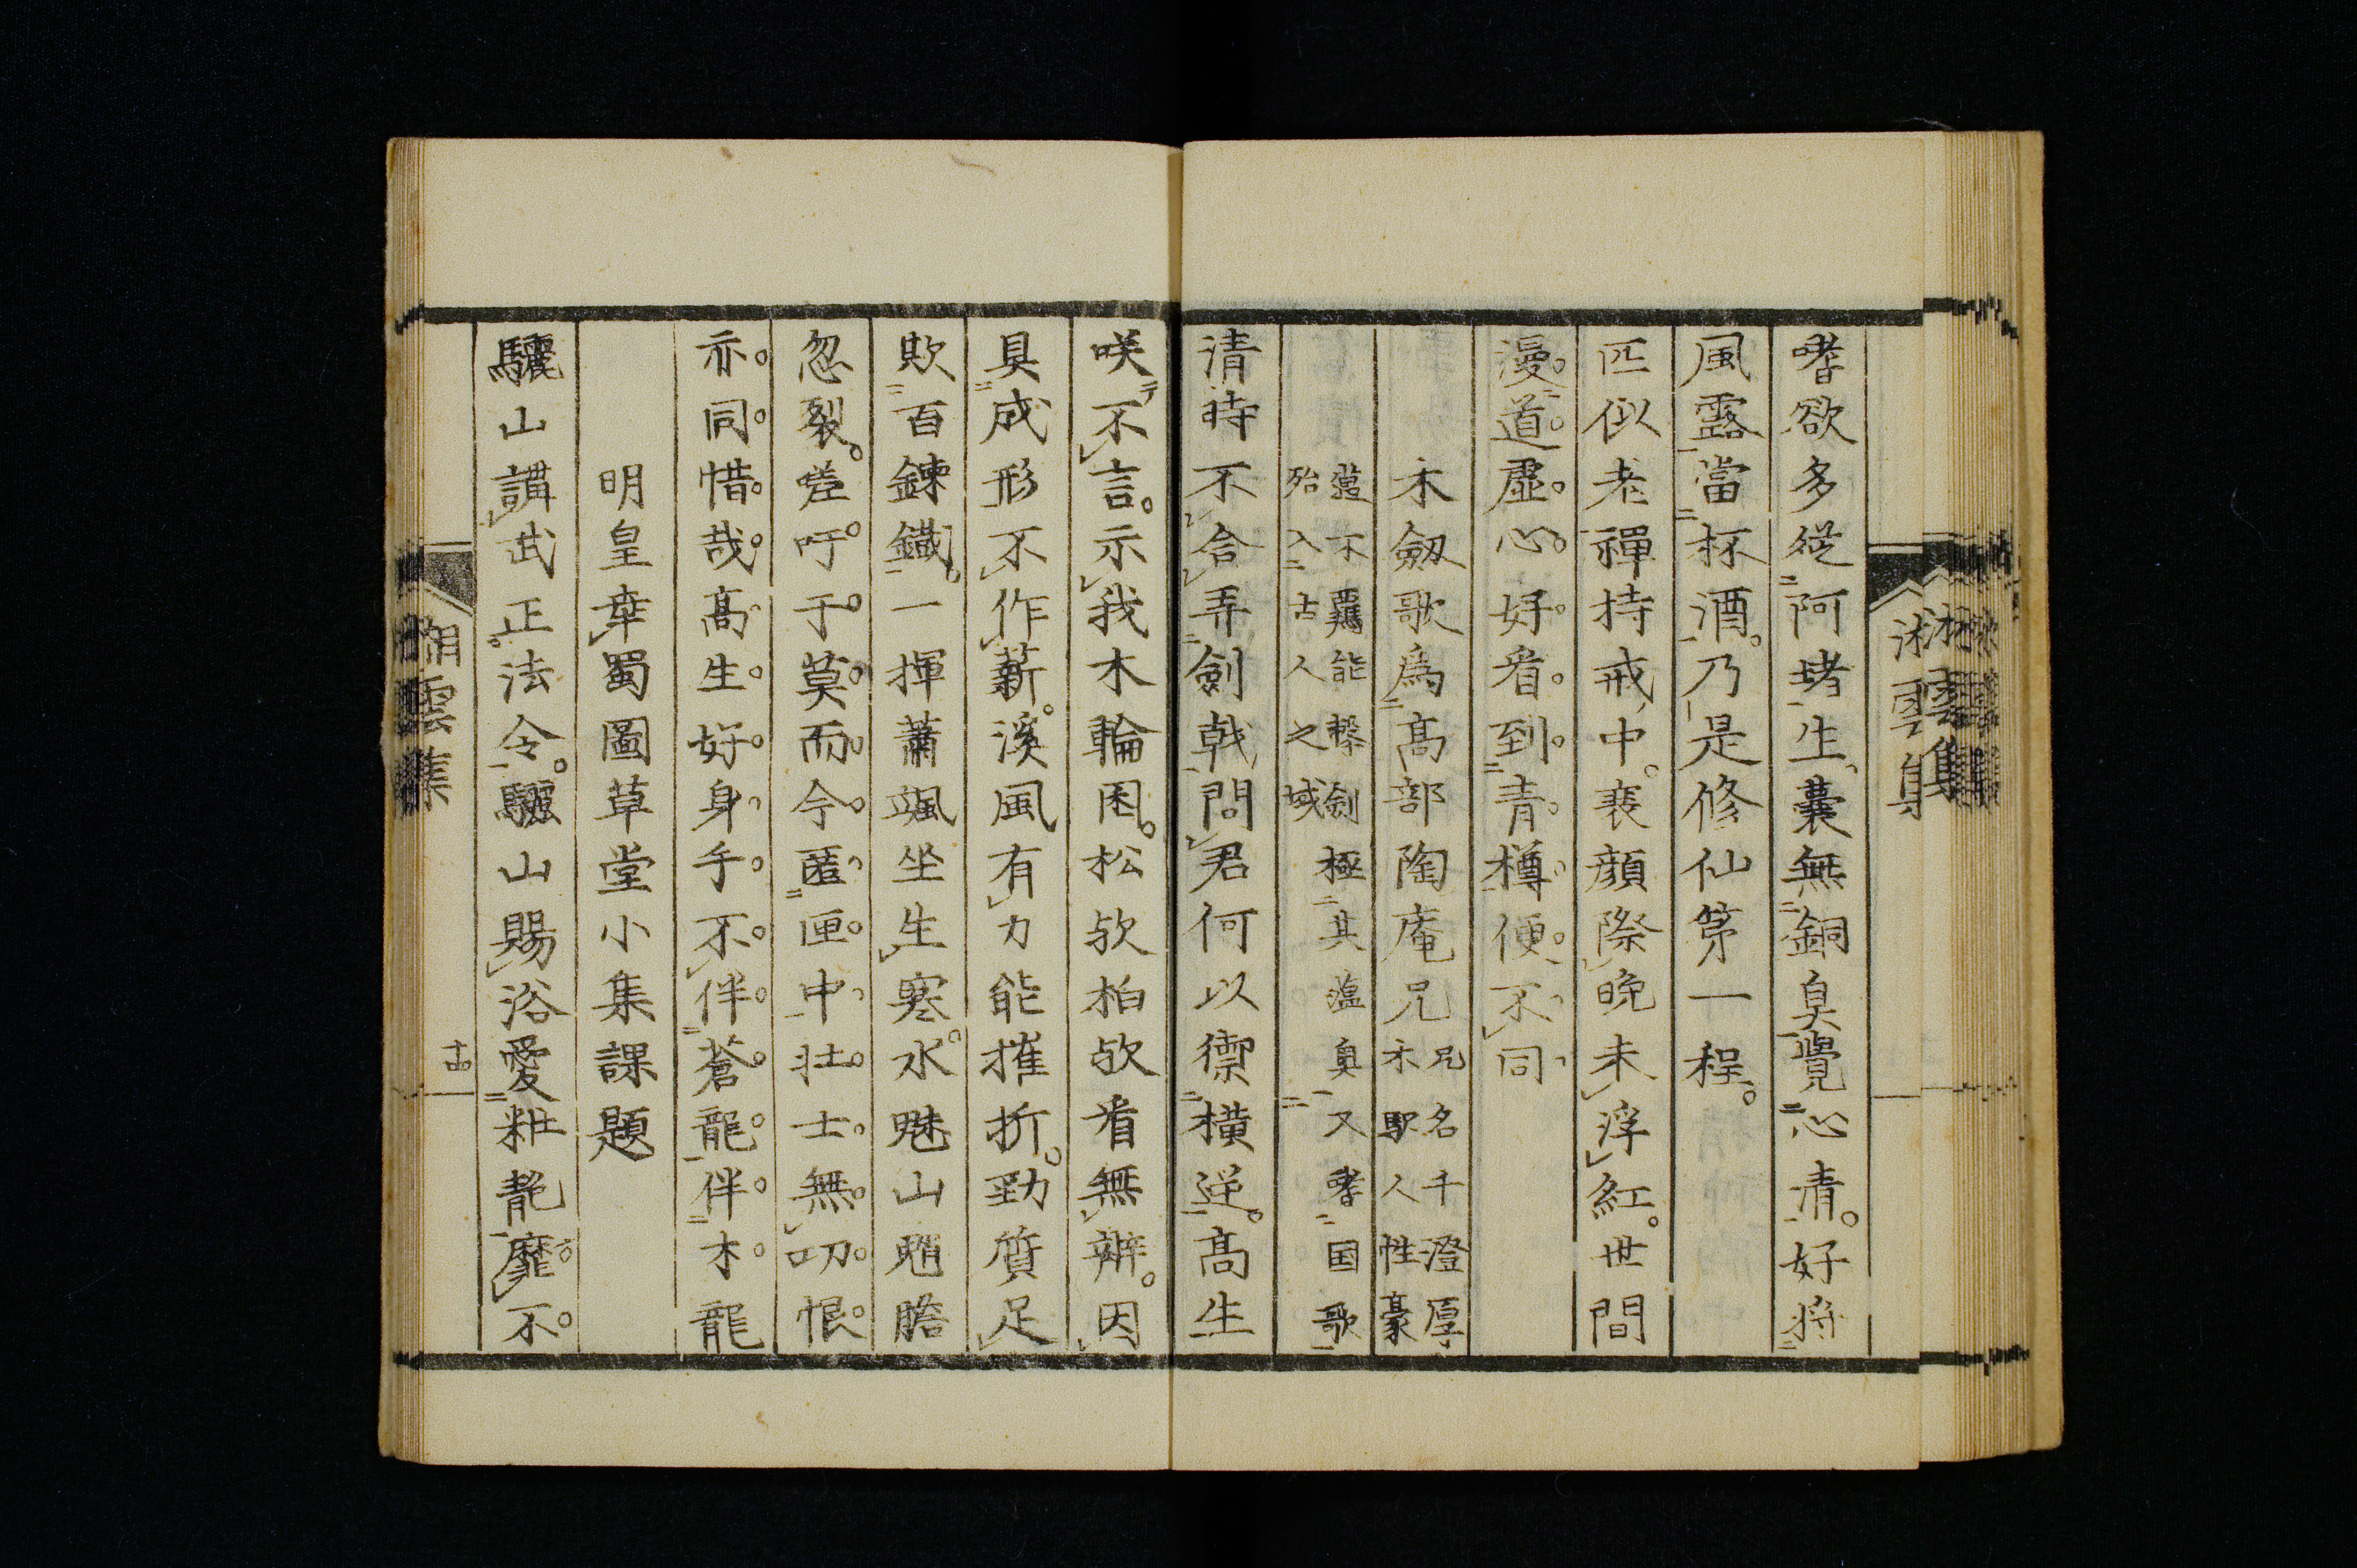 嗜欲多從阿堵生囊無銅臭覺心清好將
風露當杯酒乃是修仙第一程
匹似老禪持戒中衰顏際晚未浮紅世間
漫道虛心好看到青樽便不同
木劔歌爲髙部陶庵兄
兄名千澄厚
木馭人性豪
不羈能擊劍極其蘊奥又嗜国歌
殆入古人之域
清時不合弄劍戟問君何以禦橫逆髙生
咲不言示我木輪囷松欤柏欤看無辨因
具成形不作薪溪風有力能摧折勁質足
欺百鍊鐵一揮蕭颯坐生寒水魅山魈膽
忽裂嗟吁于莫而今匿匣中壮士無叨恨
亦同惜哉髙生好身手不伴蒼龍伴木龍
明皇幸蜀圖草堂小集課題
驪山講武正法令驪山賜浴愛粧靘靡不
湘雲集
十四